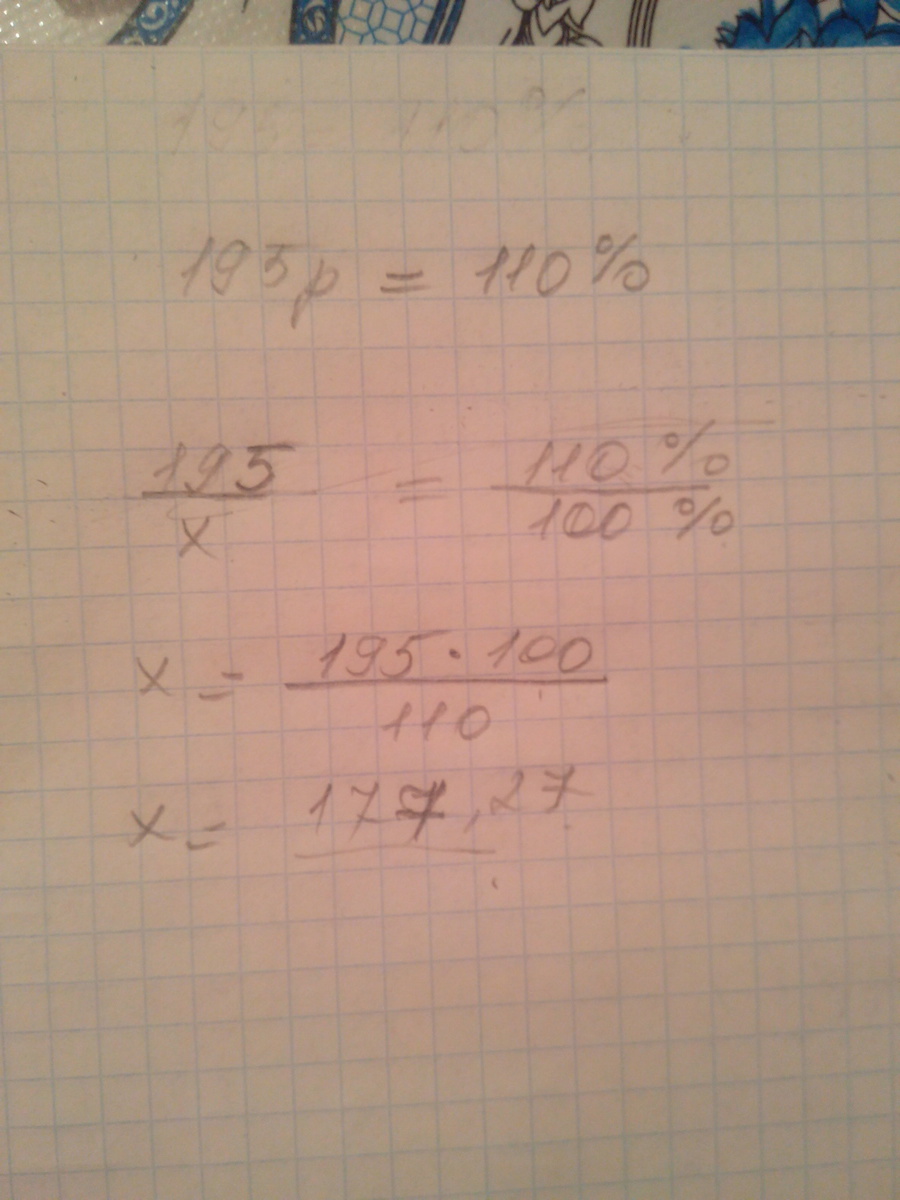 195 110%
195р = 110%
195/x = 110%/100%
x = 195·100/110
x = 177,27